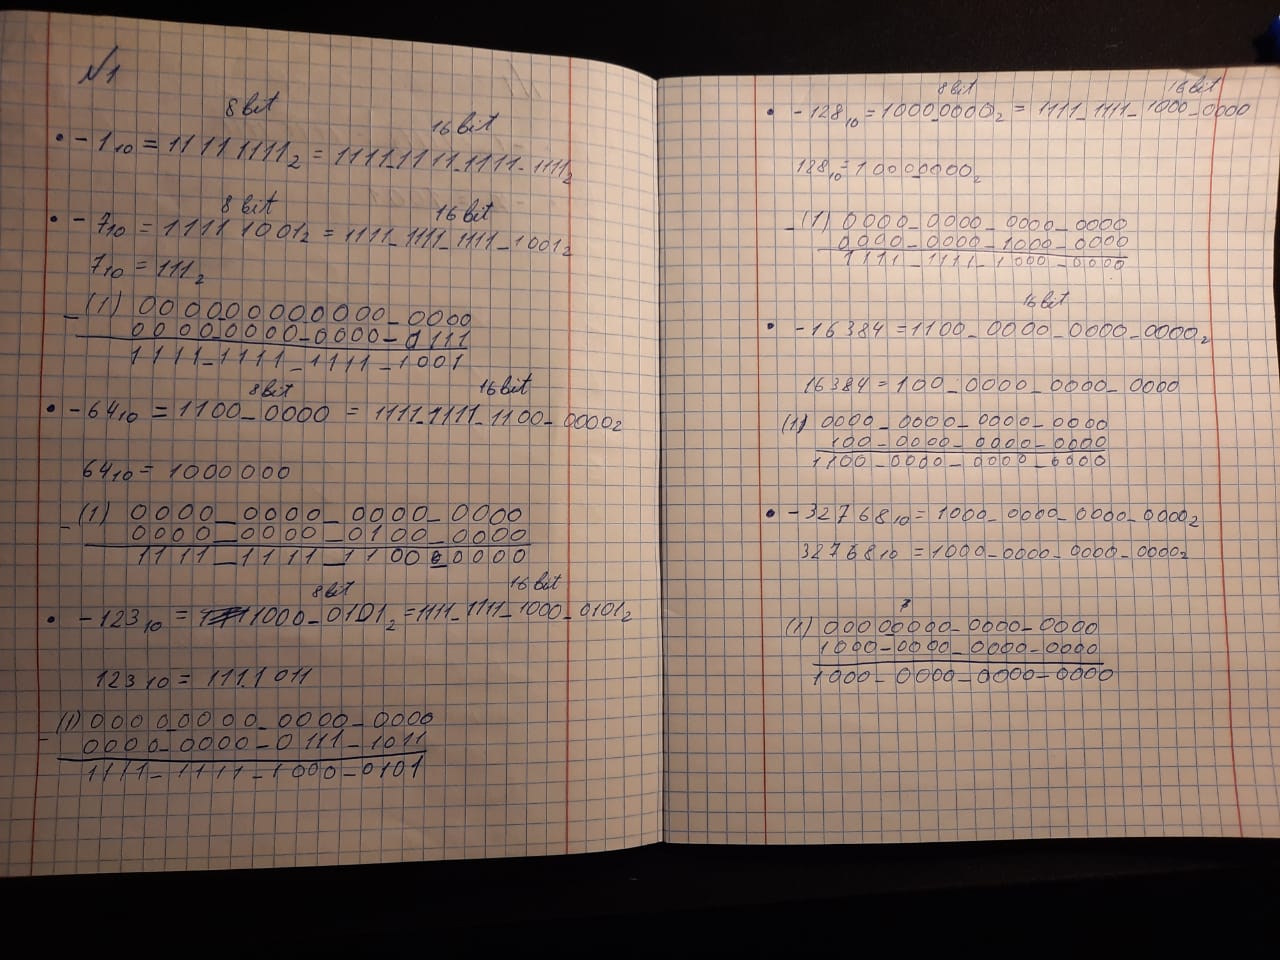 №1
8 bit 16 bit
• -1₁₀ = 11111111₂ = 1111_1111_1111_1111₂
8 bit 16 bit
• -7₁₀ = 1111 1001₂ = 1111_1111_1111_1001₂
7₁₀ = 111₂
(1) 000000000000_0000
- 0000_0000_0000_0111
1111_1111_1111_1001
8 bit 16 bit
• -64₁₀ = 1100_0000 = 1111_1111_1100_0000₂
64₁₀ = 1000000
(1) 0000_0000_0000_0000
- 0000_0000_0100_0000
1111_1111_1100_0000
8 bit 16 bit
• -123₁₀ = 1000_0101₂ = 1111_1111_1000_0101₂
123₁₀ = 1111011
(1) 0000_0000_0000_0000
- 0000_0000_0111_1011
1111_1111_1000_0101
8 bit 16 bit
• -128₁₀ = 1000_0000₂ = 1111_1111_1000_0000
128₁₀ = 10000000₂
(1) 0000_0000_0000_0000
- 0000_0000_1000_0000
1111_1111_1000_0000
16 bit
• -16384 = 1100_0000_0000_0000₂
16384 = 100_0000_0000_0000
(1) 0000_0000_0000_0000
100_0000_0000_0000
1100_0000_0000_0000
• -32768₁₀ = 1000_0000_0000_0000₂
32768₁₀ = 1000_0000_0000_0000₂
(1) 00000000_0000_0000
1000_0000_0000_0000
1000_0000_0000_0000